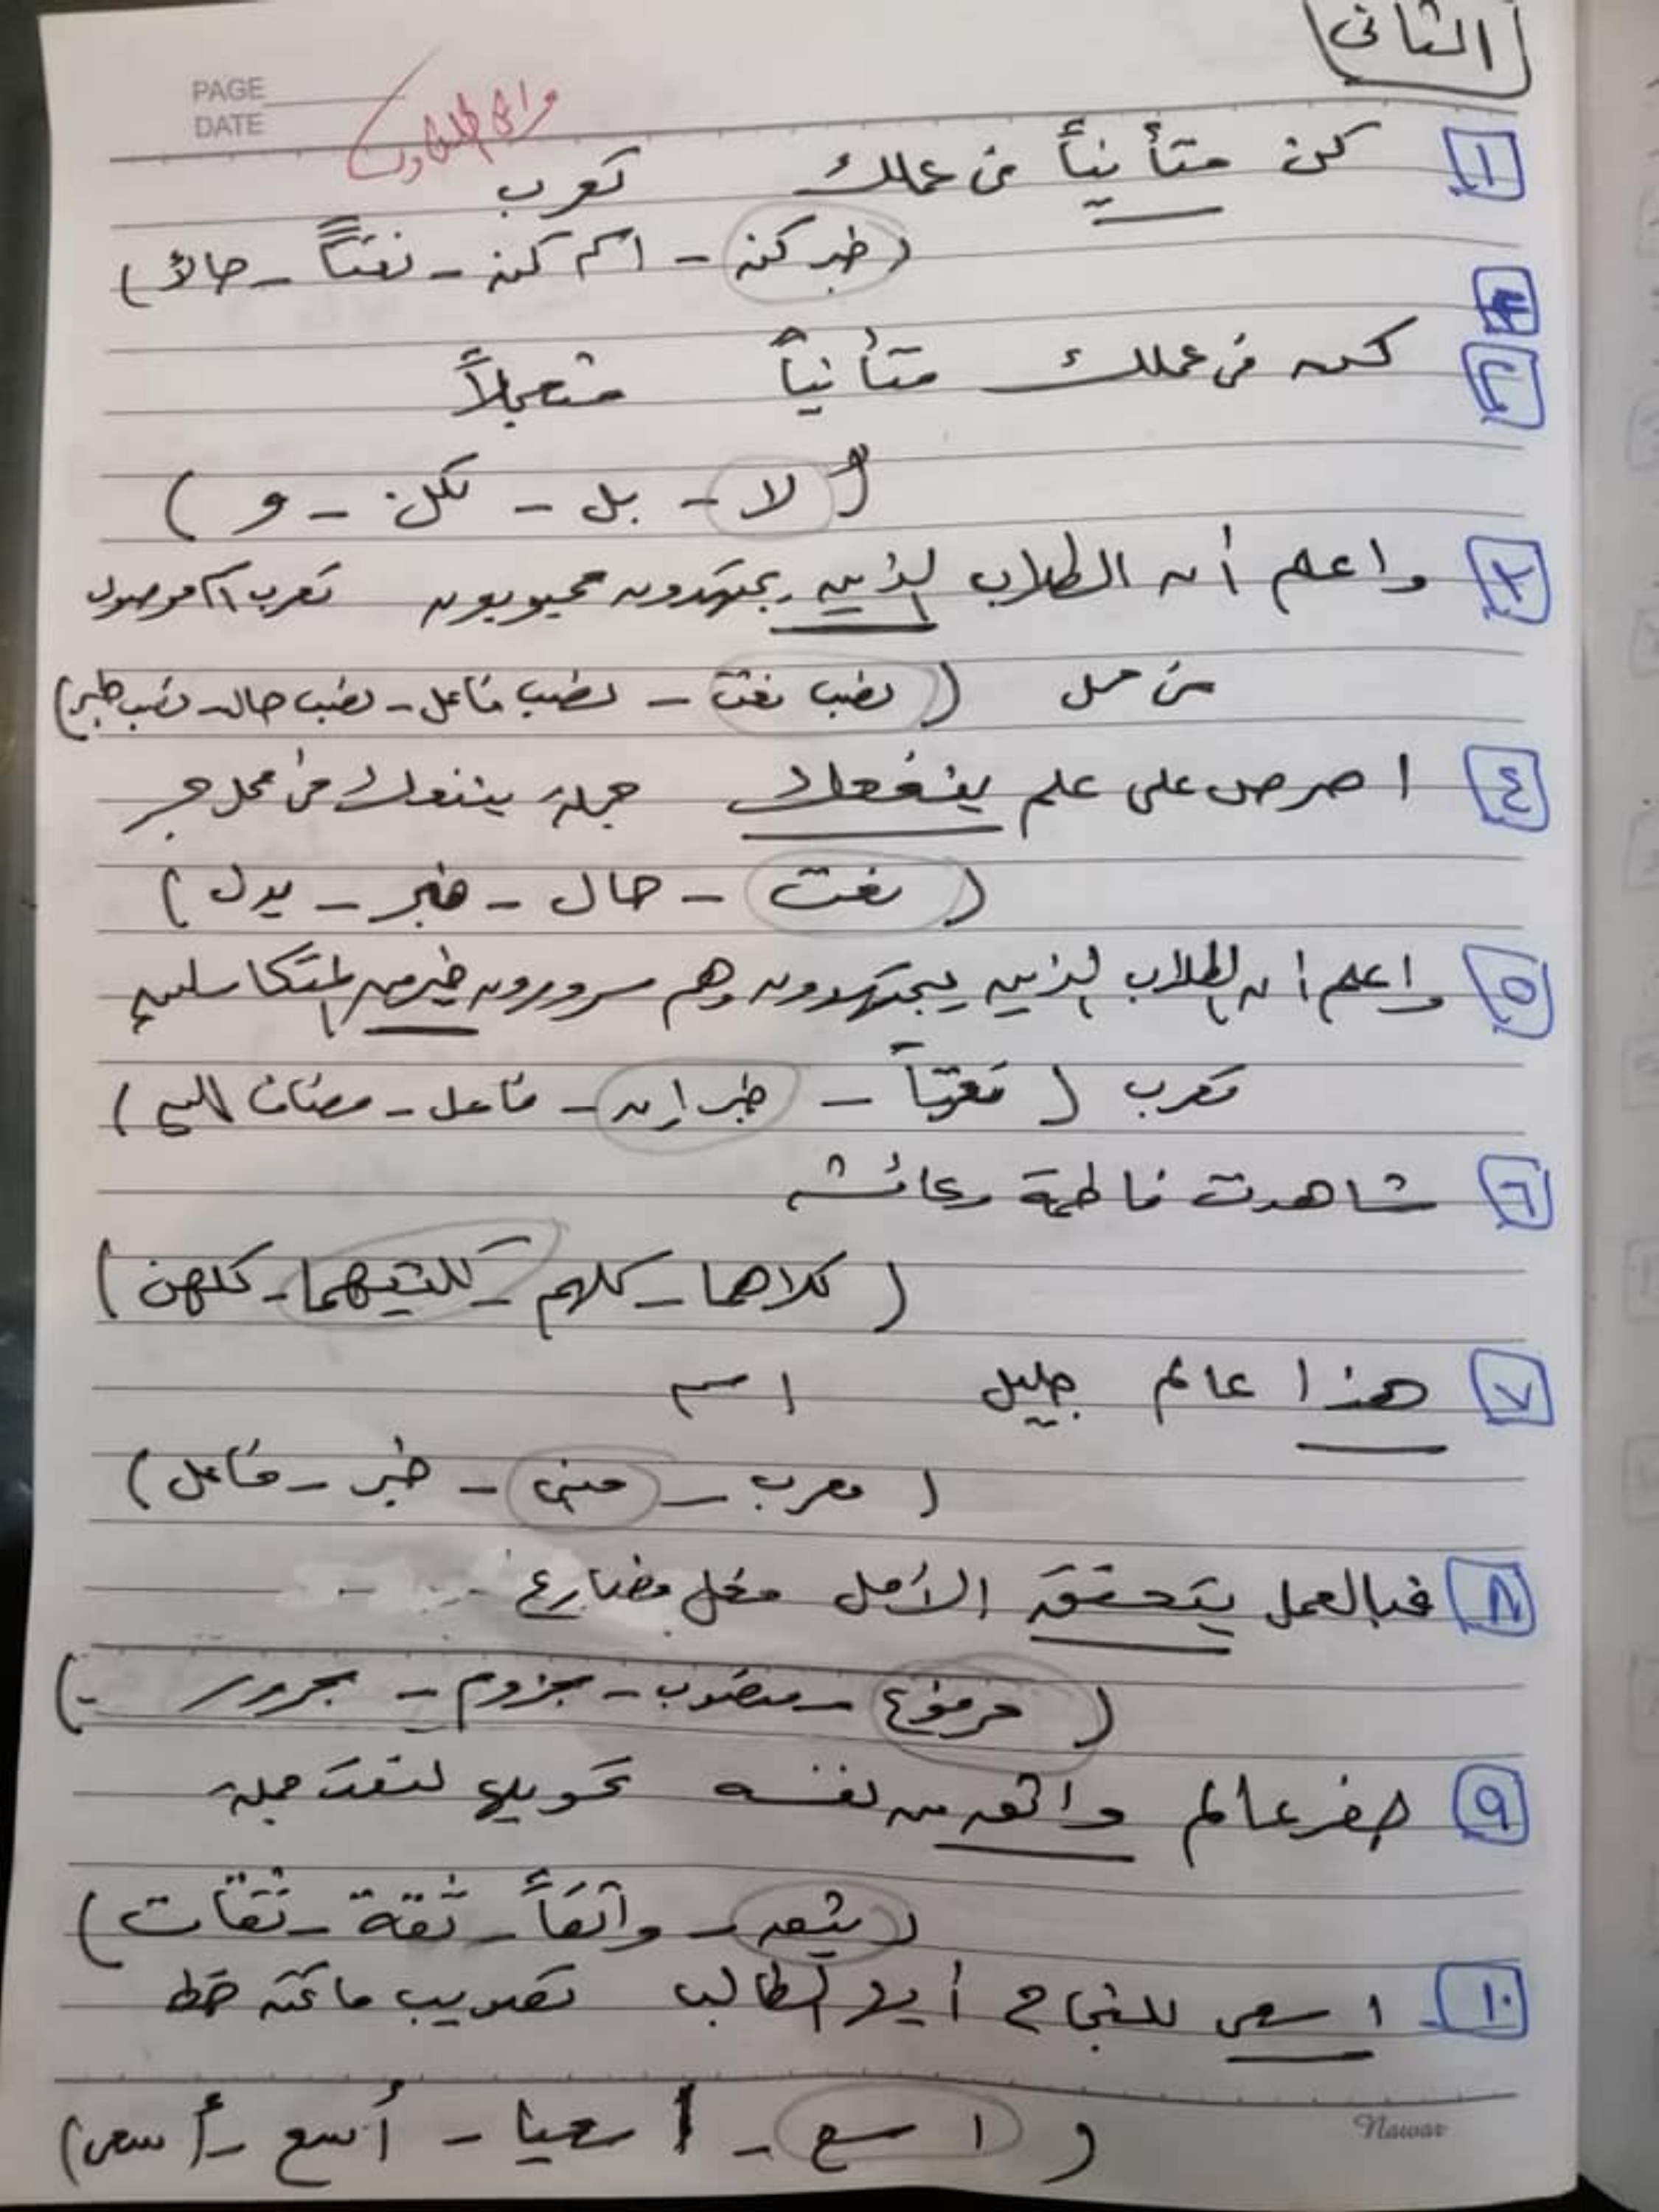 الثانى
PAGE
DATE
1 كن متأنياً فى عملك تعرب
(خبر كن - اسم كن - نعتاً - حالاً)
2 كن فى عملك متأنياً متعجلاً
(لا - بل - لكن - و)
3 واعلم أن الطلاب الذين يجتهدون محبوبون تعرب اسم موصول
فى محل (نصب نعت - نصب فاعل - نصب حال - نصب خبر)
٤ احرص على علم ينفعك جملة ينفعك فى محل جر
(نعت - حال - خبر - بدل)
٥ واعلم أن الطلاب الذين يجتهدون وهم مسرورون خير من المتكاسلين
تعرب (نعتاً - خبر إن - فاعل - مضاف إليه)
٦ شاهدت فاطمة وعائشه
(كلاهما - كلهم - كلتيهما - كلهن)
٧ هذا عالم جليل اسم
(معرب - مبنى - خبر - فاعل)
٨ فبالعمل يتحقق الأمل فعل مضارع
(مرفوع - منصوب - مجزوم - مجرور)
٩ حضر عالم واثق من نفسه تحويلها لنعت جملة
(يثق - واثقاً - ثقة - ثقات)
١٠ اسعى للنجاح أيها الطالب تصويب ما تحته خط
(اسع - اسعيا - أسع - أسعى)
Nawar